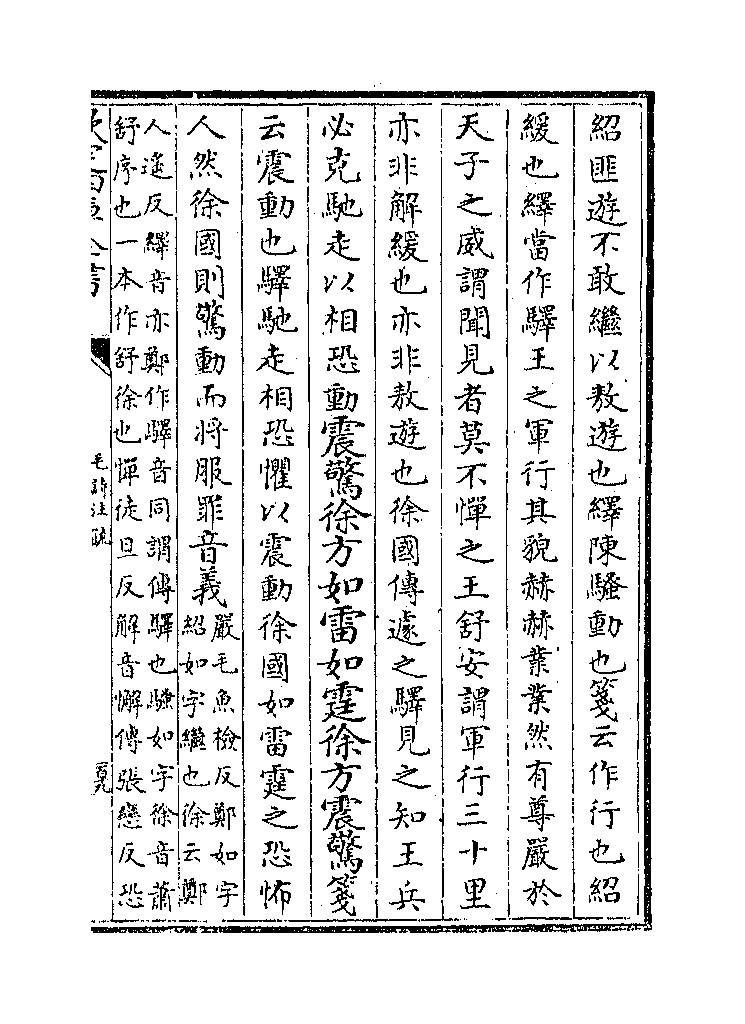 紹匪遊不敢繼以敖遊也繹陳騷動也箋云作行也紹
緩也繹當作驛王之軍行其貌赫赫業業然有尊嚴於
天子之威謂聞見者莫不憚之王舒安謂軍行三十里
亦非解緩也亦非敖遊也徐國傳遽之驛見之知王兵
必克馳走以相恐動震驚徐方如雷如霆徐方震驚箋
云震動也驛馳走相恐懼以震動徐國如雷霆之恐怖
人然徐國則驚動而將服罪音義
嚴毛魚檢反鄭如字
紹如字繼也徐云鄭
人遙反繹音亦鄭作驛音同謂傳驛也騷如字徐音蕭
舒序也一本作舒徐也憚徒旦反解音懈傳張戀反恐
毛詩注疏